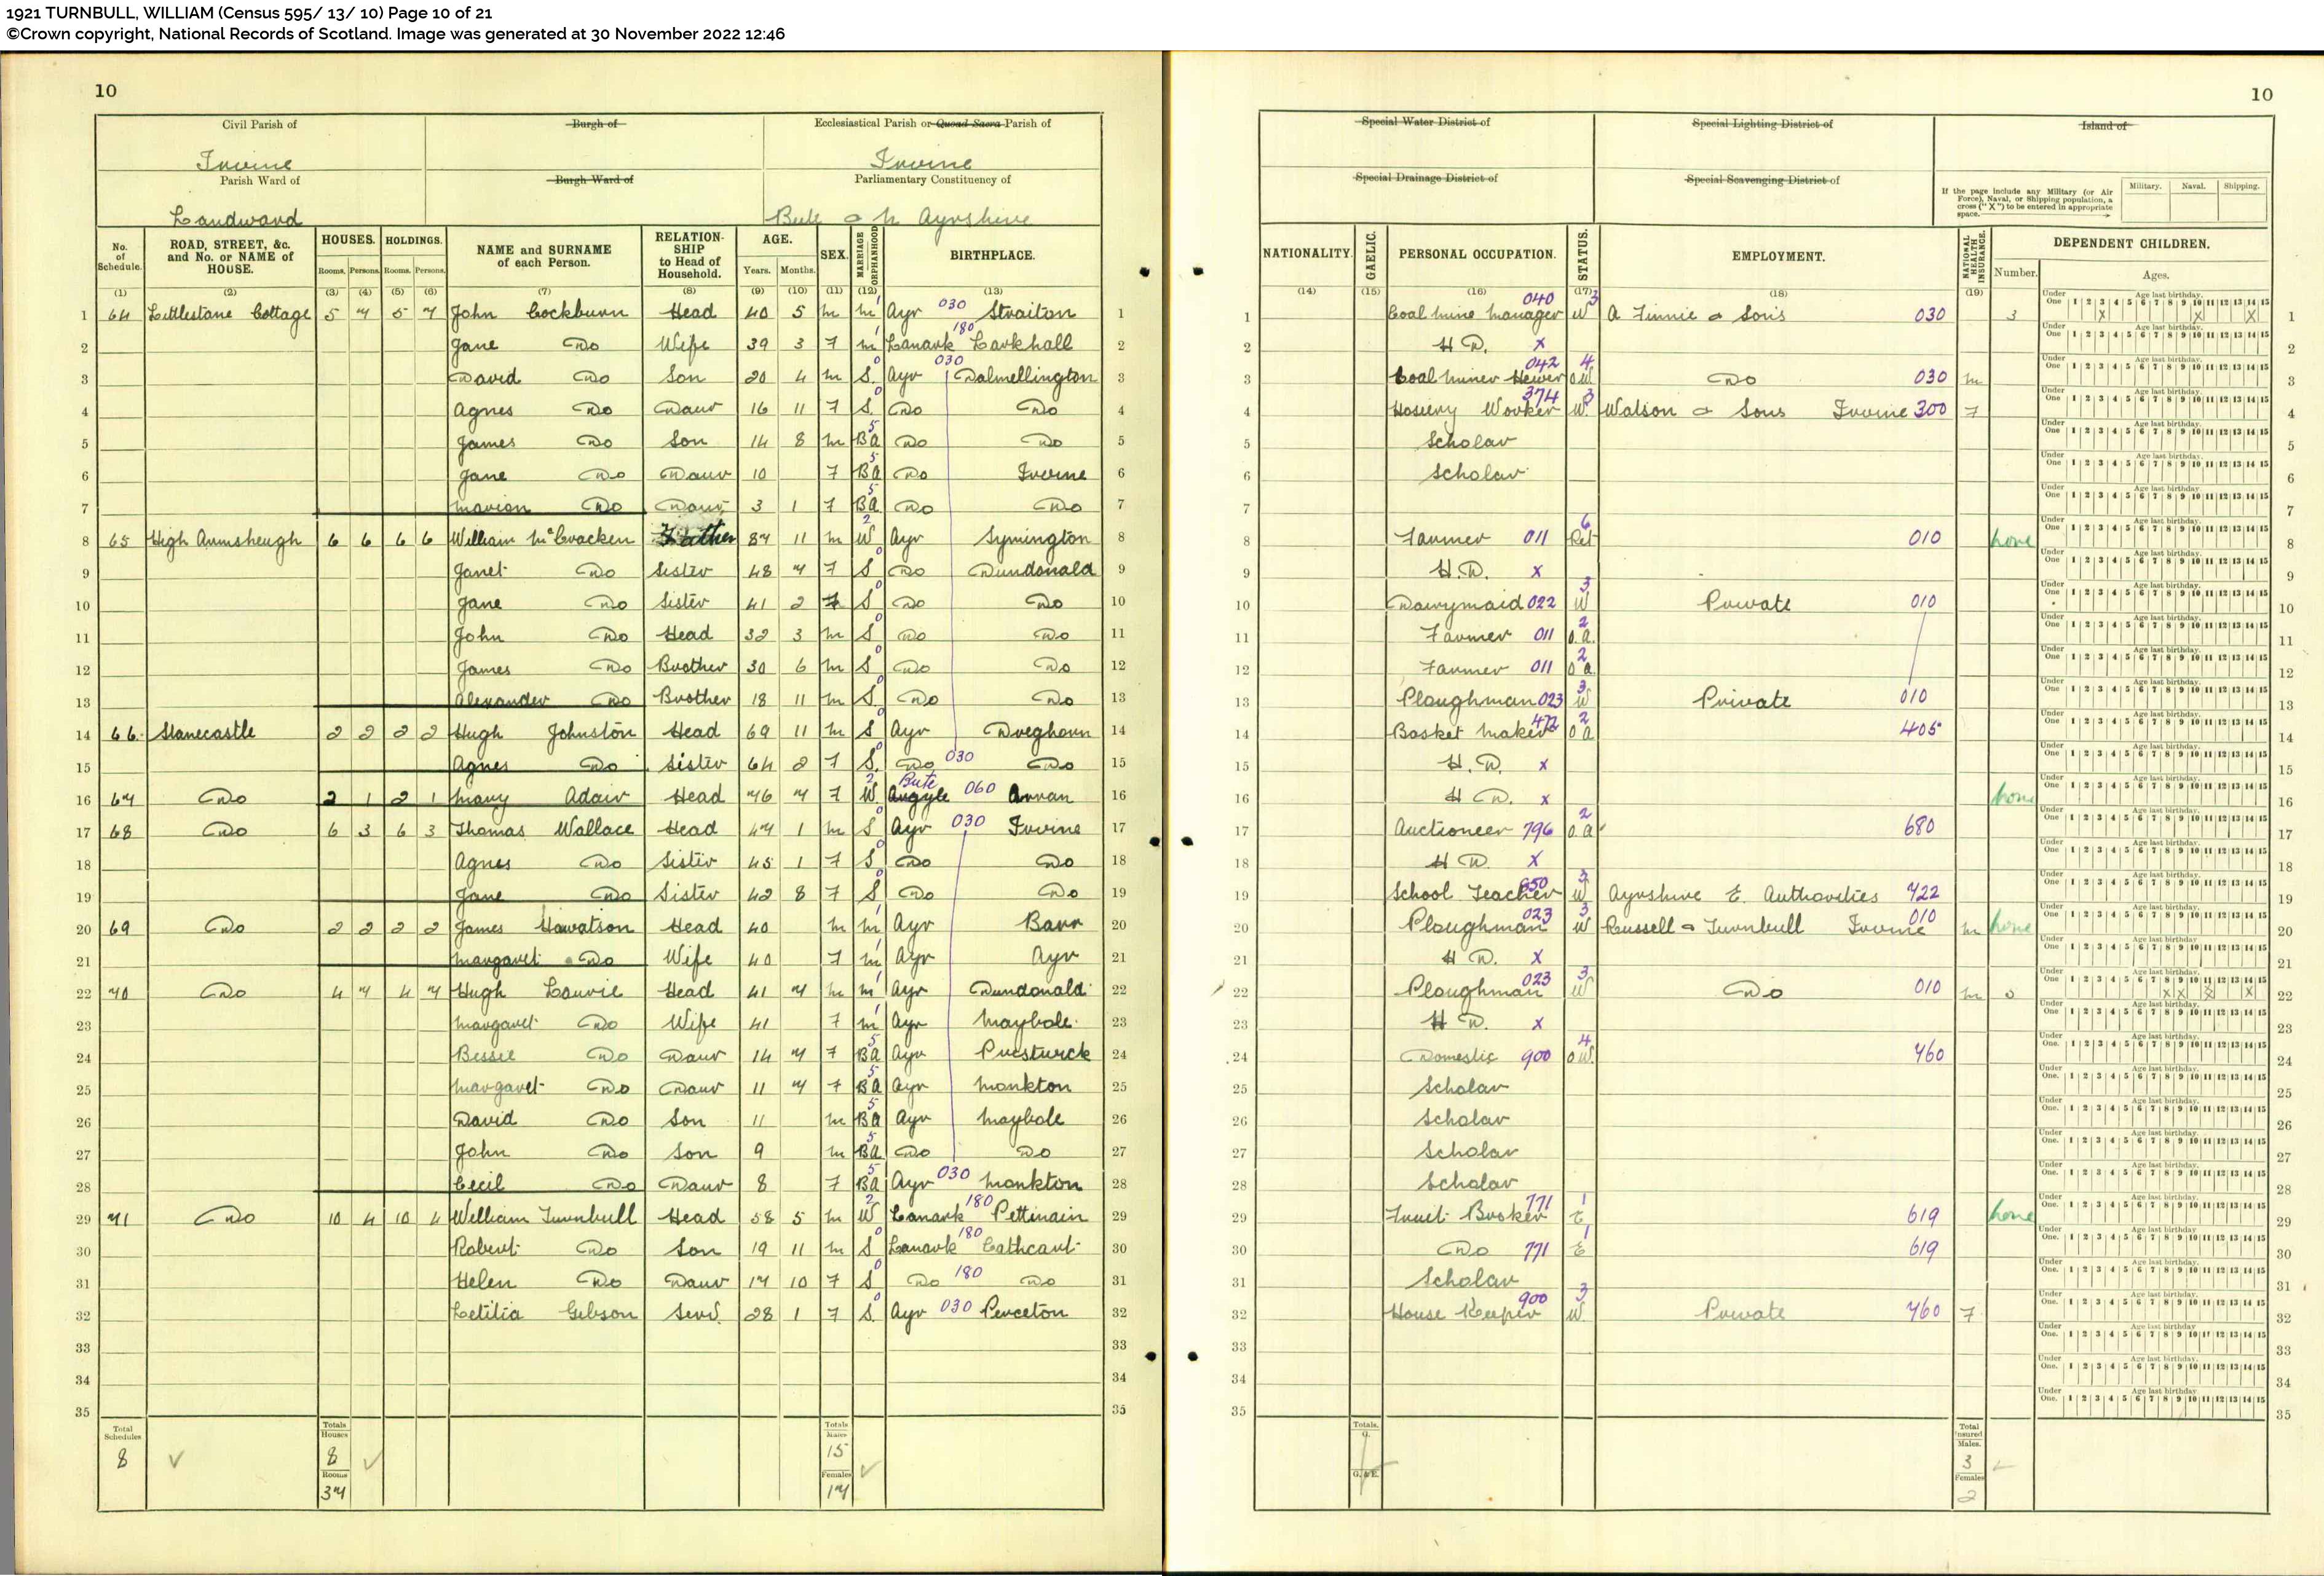 1921 TURNBULL, WILLIAM (Census 595/ 13/ 10) Page 10 of 21
©Crown copyright, National Records of Scotland. Image was generated at 30 November 2022 12:46
10 10
Civil Parish of Burgh of Ecclesiastical Parish or Quoad Sacra Parish of Special Water District of Special Lighting District of Island of
Irvine Irvine
Parish Ward of Burgh Ward of Parliamentary Constituency of Special Drainage District of Special Scavenging District of If the page include any Military (or Air Force), Naval, or Shipping population, a cross ("X") to be entered in appropriate space. Military. Naval. Shipping.
Landward Bute & N Ayrshire
No. of Schedule. ROAD, STREET, &c. and No. or NAME of HOUSE. HOUSES. Rooms. Persons. HOLDINGS. Rooms. Persons. NAME and SURNAME of each Person. RELATIONSHIP to Head of Household. AGE. Years. Months. SEX. MARRIAGE ORPHANHOOD BIRTHPLACE. NATIONALITY. GAELIC. PERSONAL OCCUPATION. STATUS. EMPLOYMENT. NATIONAL HEALTH INSURANCE. DEPENDENT CHILDREN. Number. Ages.
(1) (2) (3) (4) (5) (6) (7) (8) (9) (10) (11) (12) (13) (14) (15) (16) (17) (18) (19)
1 64 Littlestane Cottage 5 7 5 7 John Cockburn Head 40 5 M M 1 Ayr 030 Straiton 1 Coal Mine Manager 040 W 3 A Finnie & Sons 030 3 X X X
2 Jane Do Wife 39 3 F M 1 Lanark 180 Larkhall 2 H D. X
3 David Do Son 20 4 M S. 0 Ayr 030 Dalmellington 3 Coal Miner Hewer 042 OW 4 Do 030 M
4 Agnes Do Daur 16 11 F S. 0 Do Do 4 Hosiery Worker 374 W. 3 Watson & Sons Irvine 300 F
5 James Do Son 14 8 M BA 5 Do Do 5 Scholar
6 Jane Do Daur 10 F BA 5 Do Irvine 6 Scholar
7 Marion Do Daur 3 1 F BA 5 Do Do 7
8 65 High Armsheugh 6 6 6 6 William McCracken Father 87 11 M W 2 Ayr Symington 8 Farmer 011 Ret 6 010 none
9 Janet Do Sister 48 7 F S 0 Do Dundonald 9 H.D. X
10 Jane Do Sister 41 2 F S 0 Do Do 10 Dairymaid 022 W 3 Private 010
11 John Do Head 32 3 M S 0 Do Do 11 Farmer 011 O.A. 2
12 James Do Brother 30 6 M S 0 Do Do 12 Farmer 011 O A 2
13 Alexander Do Brother 18 11 M S. 0 Do Do 13 Ploughman 023 W 3 Private 010
14 66. Stanecastle 2 2 2 2 Hugh Johnston Head 69 11 M S 0 Ayr Dreghorn 14 Basket Maker 472 O A 2 405
15 Agnes Do Sister 64 2 F S. 0 Do 030 Do 15 H. D. X
16 67 Do 2 1 2 1 Mary Adair Head 76 7 F W. 2 Argyle Bute 060 Arran 16 H D. X none
17 68 Do 6 3 6 3 Thomas Wallace Head 47 1 M S 0 Ayr 030 Irvine 17 Auctioneer 796 O.A 2 680
18 Agnes Do Sister 45 1 F S 0 Do Do 18 H D. X
19 Jane Do Sister 42 8 F S 0 Do Do 19 School Teacher 650 W 3 Ayrshire E. Authorities 722
20 69 Do 2 2 2 2 James Howatson Head 40 M M 1 Ayr Barr 20 Ploughman 023 W 3 Russell & Turnbull Irvine 010 M none
21 Margaret Do Wife 40 F M 1 Ayr Ayr 21 H D. X
22 70 Do 4 7 4 7 Hugh Lourie Head 41 7 M M 1 Ayr Dundonald 22 Ploughman 023 W 3 Do 010 M X X X X
23 Margaret Do Wife 41 F M 1 Ayr Maybole 23 H D. X
24 Bessie Do Daur 14 7 F BA 5 Ayr Prestwick 24 Domestic 900 O.W. 4 760
25 Margaret Do Daur 11 7 F BA 5 Ayr Monkton 25 Scholar
26 David Do Son 11 M BA 5 Ayr Maybole 26 Scholar
27 John Do Son 9 M BA 5 Do Do 27 Scholar
28 Cecil Do Daur 8 F BA 5 Ayr 030 Monkton 28 Scholar
29 71 Do 10 4 10 4 William Turnbull Head 58 5 M W 2 Lanark 180 Pettinain 29 Fruit Broker 771 E 1 619 none
30 Robert Do Son 19 11 M S 0 Lanark 180 Cathcart 30 Do 771 E 1 619
31 Helen Do Daur 17 10 F S 0 Do 180 Do 31 Scholar
32 Letitia Gibson Serv. 28 1 F S. 0 Ayr 030 Perceton 32 House Keeper 900 W. 3 Private 760 F
33 33
34 34
35 35
Total Schedules 8 Totals Houses 8 Rooms 37 Totals Males 15 Females 17 Totals. G. G. & E. Total Insured Males. 3 Females 2